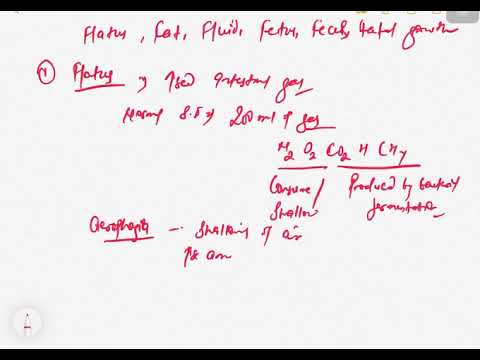 Flatus, Fat, Fluid, Fetus, Feces, Fatal growth
① Flatus → ↑sed intestinal gas
Normal S.I → 200 ml of gas
N2 O2 CO2 H CH4
Consume / Produced by bacterial
Swallow fermentation
Aerophagia - Swallowing of air